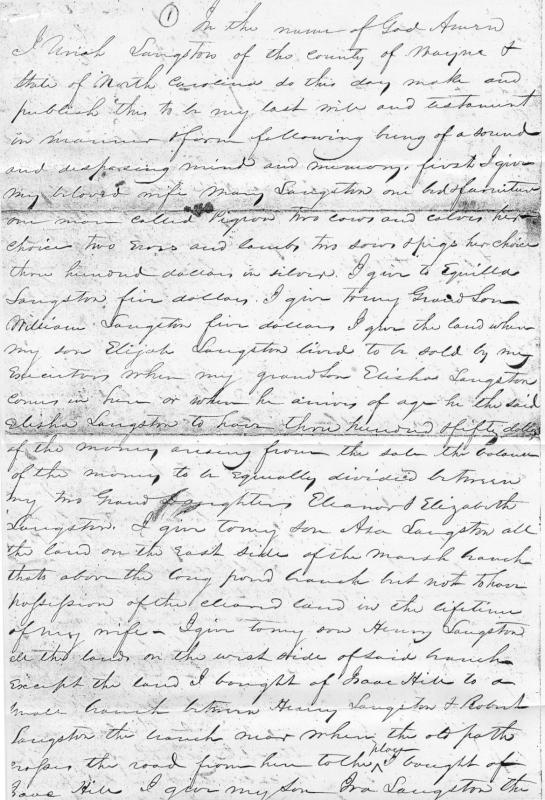 1
In the name of God Amen
I Uriah Langston of the county of Wayne &
State of North Carolina do this day make and
publish this to be my last will and testament
in manner & form following being of a sound
and desposing mind and memory. first I give
my beloved wife Mary Langston one bed & furniture
one man called Pigeon two cows and calves her
choice two Ewes and lambs two sows & pigs her choice
three hundred dollars in silver. I give to Equilla
Langston five dollars. I give to my Grand Son
William Langston five dollars I give the land where
my son Elijah Langston lived to be sold by my
Executors when my grandson Elisha Langston
comes in here or when he arrives of age he the said
Elisha Langston to have three hundred & fifty dollars
of the money arising from the sale the balance
of the money to be Equally divided between
my two Grand Daughters Eleanor & Elizabeth
Langston. I give to my son Asa Langston all
the land on the East side of the marsh branch
thats above the long pond branch but not to have
possession of the cleared land in the lifetime
of my wife - I give to my son Henry Langston
all the lands on the west side of said branch
Except the land I bought of Isaac Hill to a
small branch between Henry Langston & Robert
Langston the branch near where the old path
crosses the road from him to the place I bought of
Isaac Hill I give my son Ira Langston the